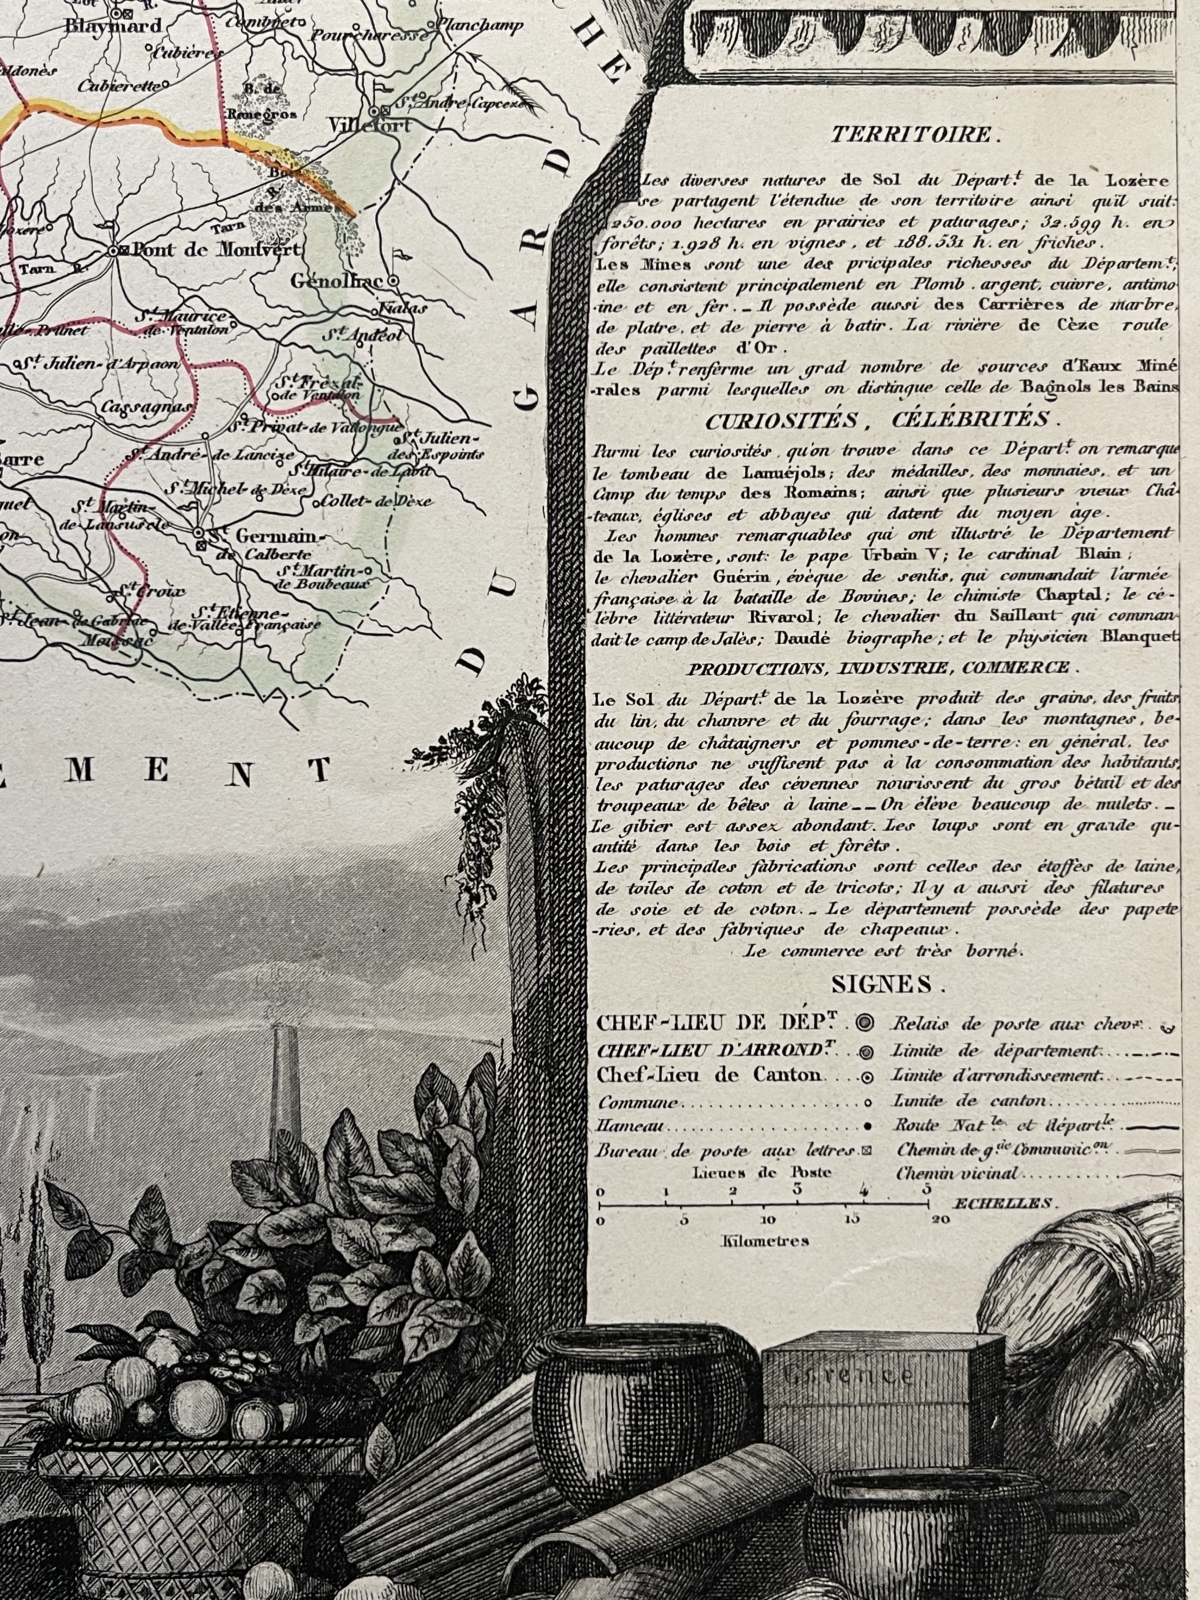 Blaymard
Cubières
Cubierette
Combret
Pourcharesse
Planchamp
B. de
Renegros
St. André-Capceze
Villefort
Bois
des Armes
Tarn
Pont de Montvert
Tarn R.
Génolhac
Vialas
St. Maurice-
de-Ventalon
St. Andéol
St. Julien-d'Arpaon
St. Frézal-
de Ventalon
Cassagnas
St. Privat-de Vallongue
St. Julien-
des-Espoints
St. André-de Lancize
St. Hilaire-de Lavit
St. Michel-de Dèze
Collet-de Dèze
St. Martin-
de-Lansuscle
St. Germain-
de Calberte
St. Martin-
de Boubeaux
Ste. Croix
St. Jean-de Gabriac
St. Etienne-
de-Vallée-Française
Moissac
CHE
DU GARD
EMENT
TERRITOIRE.
Les diverses natures de Sol du Départ.t de la Lozère
se partagent l'étendue de son territoire ainsi qu'il suit:
250.000 hectares en prairies et paturages; 32.599 h. en
forêts; 1.928 h. en vignes, et 188.531 h. en friches.
Les Mines sont une des pricipales richesses du Départem.t;
elle consistent principalement en Plomb. argent, cuivre, antimo
-ine et en fer._ Il possède aussi des Carrières de marbre,
de platre, et de pierre à batir. La rivière de Cèze roule
des paillettes d'Or.
Le Dép.t renferme un grad nombre de sources d'Eaux Miné
-rales parmi lesquelles on distingue celle de Bagnols les Bains
CURIOSITÉS, CÉLÉBRITÉS.
Parmi les curiosités, qu'on trouve dans ce Départ.t on remarque
le tombeau de Lanuéjols; des médailles, des monnaies, et un
Camp du temps des Romains; ainsi que plusieurs vieux Châ-
-teaux, églises et abbayes qui datent du moyen age.
Les hommes remarquables qui ont illustré le Département
de la Lozère, sont: le pape Urbain V; le cardinal Blain;
le chevalier Guérin, évèque de senlis, qui commandait l'armée
française à la bataille de Bovines; le chimiste Chaptal; le cé-
lèbre littérateur Rivarol; le chevalier du Saillant qui comman-
dait le camp de Jalès; Daudé biographe; et le physicien Blanquet
PRODUCTIONS, INDUSTRIE, COMMERCE.
Le Sol du Départ.t de la Lozère produit des grains, des fruits,
du lin, du chanvre et du fourrage; dans les montagnes, be-
aucoup de châtaigners et pommes-de-terre: en général, les
productions ne suffisent pas à la consommation des habitants,
les paturages des cévennes nourissent du gros bétail et des
troupeaux de bêtes à laine__On élève beaucoup de mulets._
Le gibier est assez abondant. Les loups sont en grande qu-
antité dans les bois et forêts.
Les principales fabrications sont celles des étoffes de laine,
de toiles de coton et de tricots; Il y a aussi des filatures
de soie et de coton._ Le département possède des papete
-ries, et des fabriques de chapeaux.
Le commerce est très borné.
SIGNES.
CHEF-LIEU DE DÉP.T
Relais de poste aux chevx.
CHEF-LIEU D'ARROND.T
Limite de département
Chef-Lieu de Canton
Limite d'arrondissement
Commune
Limite de canton
Hameau
Route Nat.le et départ.le
Bureau de poste aux lettres
Chemin de g.de Communic.on
Lieues de Poste
Chemin vicinal
0 1 2 3 4 5
ECHELLES.
0 5 10 15 20
Kilometres